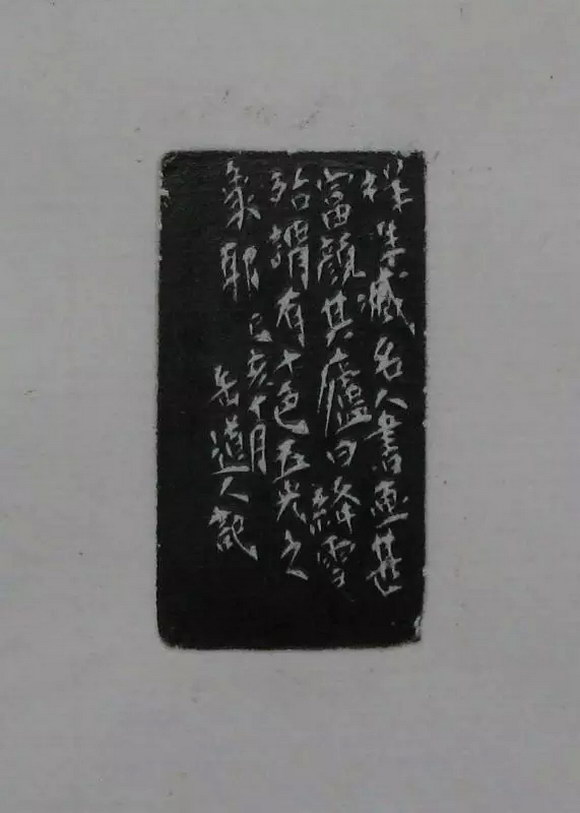 禖生藏名人書画甚
富顔其廬曰絳雪
殆謂有十色五光之
象耶己亥十月
缶道人記